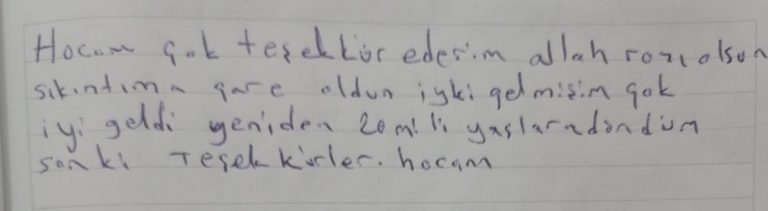 Hocam çok teşekkür ederim allah razı olsun
sıkıntıma çare oldun iyki gelmişim çok
iyi geldi yeniden 20 mi li yaşlaradöndüm
sanki Teşekkürler. hocam